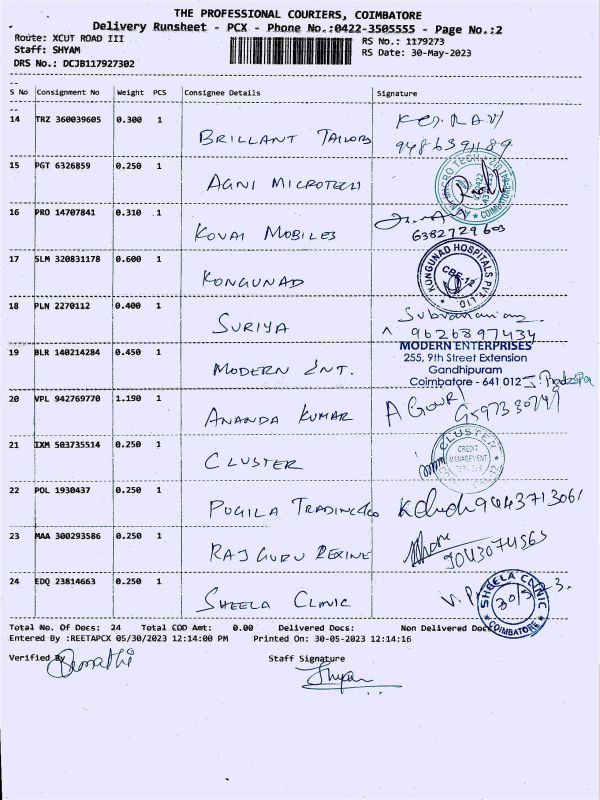 THE PROFESSIONAL COURIERS, COIMBATORE
Delivery Runsheet - PCX - Phone No.:0422-3505555 - Page No.:2
Route: XCUT ROAD III
RS No.: 1179273
Staff: SHYAM
RS Date: 30-May-2023
DRS No.: DCJB117927302
S No Consignment No Weight PCS Consignee Details Signature
14 TRZ 360039605 0.300 1
BRILLANT TAILORS
15 PGT 6326859 0.250 1
AGNI MICROTECH
16 PRO 14707841 0.310 1
KOVAI MOBILES
6382729603
17 SLM 320831178 0.600 1
KONGUNAD
KUNGUNAD HOSPITALS PVT. LTD
CBE-12
18 PLN 2270112 0.400 1
SURIYA
9626897434
19 BLR 140214284 0.450 1
MODERN ENT.
MODERN ENTERPRISES
255, 9th Street Extension
Gandhipuram
Coimbatore - 641 012
20 VPL 942769770 1.190 1
ANANDA KUMAR
A Gouri
21 IXM 503735514 0.250 1
CLUSTER
CLUSTER
CREDIT
MANAGEMENT
22 POL 1930437 0.250 1
PUGILA TRADING & Co
9443713061
23 MAA 300293586 0.250 1
RAJ GURU REXINE
24 EDQ 23814663 0.250 1
SHEELA CLINIC
SHEELA CLINIC
COIMBATORE
Total No. Of Docs: 24 Total COD Amt: 0.00 Delivered Docs: Non Delivered Docs
Entered By :REETAPCX 05/30/2023 12:14:00 PM Printed On: 30-05-2023 12:14:16
Verified By
Staff Signature
Shyam